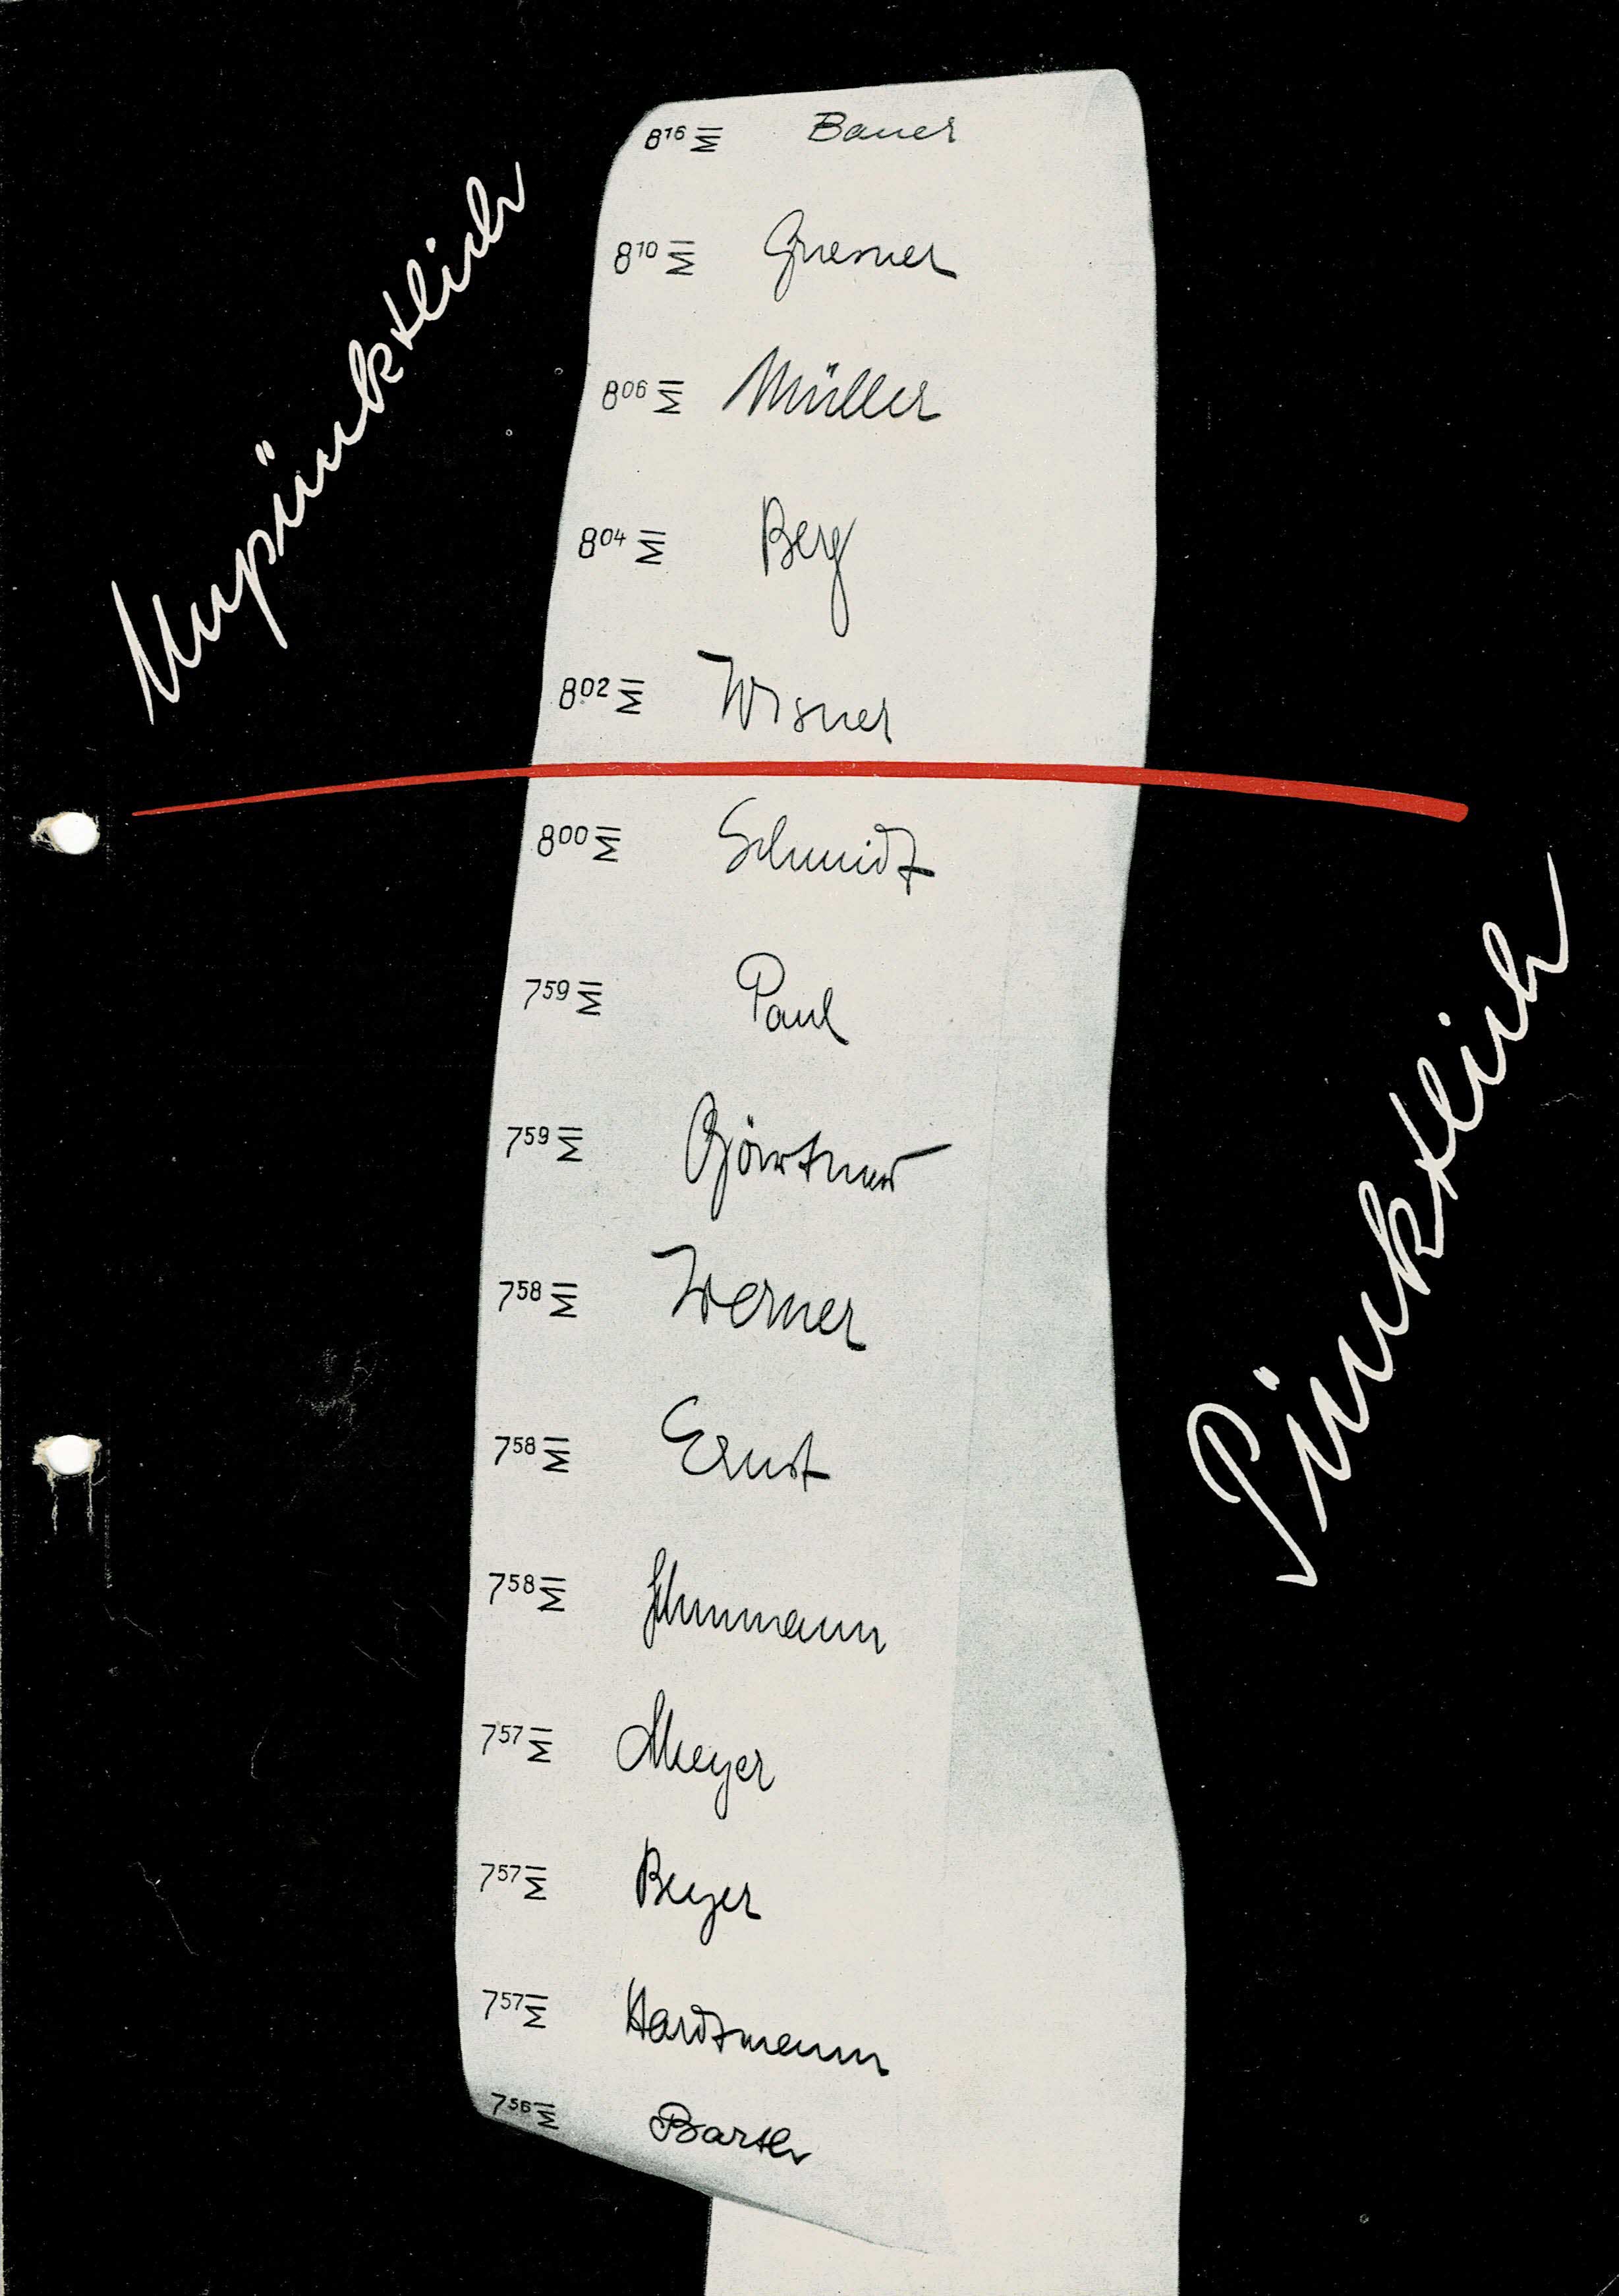 Unpünktlich
8¹⁶ MI Bauer
8¹⁰ MI
8⁰⁶ MI Müller
8⁰⁴ MI Berg
8⁰² MI Wisner
8⁰⁰ MI Schmidt
7⁵⁹ MI Paul
7⁵⁹ MI Gärtner
7⁵⁸ MI Werner
7⁵⁸ MI Ernst
7⁵⁸ MI
7⁵⁷ MI Meyer
7⁵⁷ MI Beyer
7⁵⁷ MI Hardtmann
7⁵⁶ MI Barth
Pünktlich